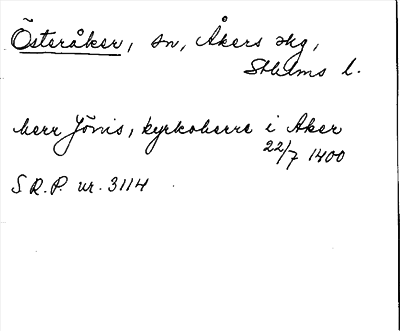 Österåker, sn, Åkers skg,
Sthlms l.
herr Jönis, kyrkoherre i Aker
22/7 1400
S.R.P. nr. 3114